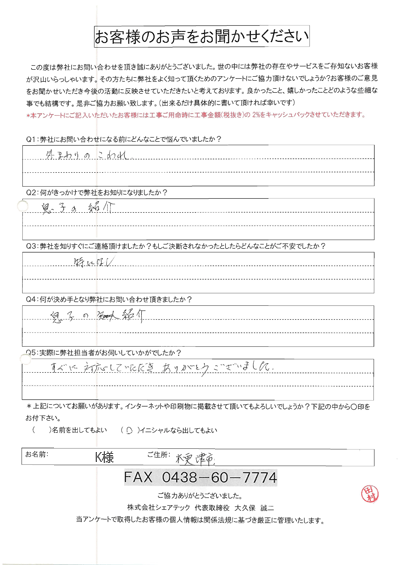 お客様のお声をお聞かせください
この度は弊社にお問い合わせを頂き誠にありがとうございました。世の中には弊社の存在やサービスをご存知ないお客様
が沢山いらっしゃいます。その方たちに弊社をよく知って頂くためのアンケートにご協力頂けないでしょうか?お客様のご意見
をお聞かせいただき今後の活動に反映させていただきたいと考えております。良かったこと、嬉しかったことどのような些細な
事でも結構です。是非ご協力お願い致します。(出来るだけ具体的に書いて頂ければ幸いです)
*本アンケートにご記入いただいたお客様には工事ご用命時に工事金額(税抜き)の2%をキャッシュバックさせていただきます。
Q1:弊社にお問い合わせになる前にどんなことで悩んでいましたか?
外まわりのこわれ
Q2:何がきっかけで弊社をお知りになりましたか?
息子の紹介
Q3:弊社を知りすぐにご連絡頂けましたか?もしご決断されなかったとしたらどんなことがご不安でしたか?
特になし
Q4:何が決め手となり弊社にお問い合わせ頂きましたか?
息子の紹介
Q5:実際に弊社担当者がお伺いしていかがでしたか?
すぐに対応していただきありがとうございました。
*上記についてお願いがあります。インターネットや印刷物に掲載させて頂いてもよろしいでしょうか?下記の中から〇印を
お付下さい。
( )名前を出してもよい (〇)イニシャルなら出してもよい
お名前: K様 ご住所: 木更津市
FAX 0438-60-7774
ご協力ありがとうございました。
株式会社シェアテック 代表取締役 大久保 誠二
当アンケートで取得したお客様の個人情報は関係法規に基づき厳正に管理いたします。
田村